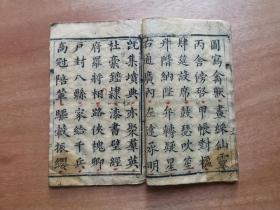 圖寫禽獸 畫綵仙靈
丙舍傍啓 甲帳對楹
肆筵設席 鼓瑟吹笙
陞階納陛 弁轉疑星
右通廣內 左達承明
旣集墳典 亦聚羣英
杜稾鍾隸 漆書壁經
府羅將相 路俠槐卿
戶封八縣 家給千兵
高冠陪輦 驅轂振纓